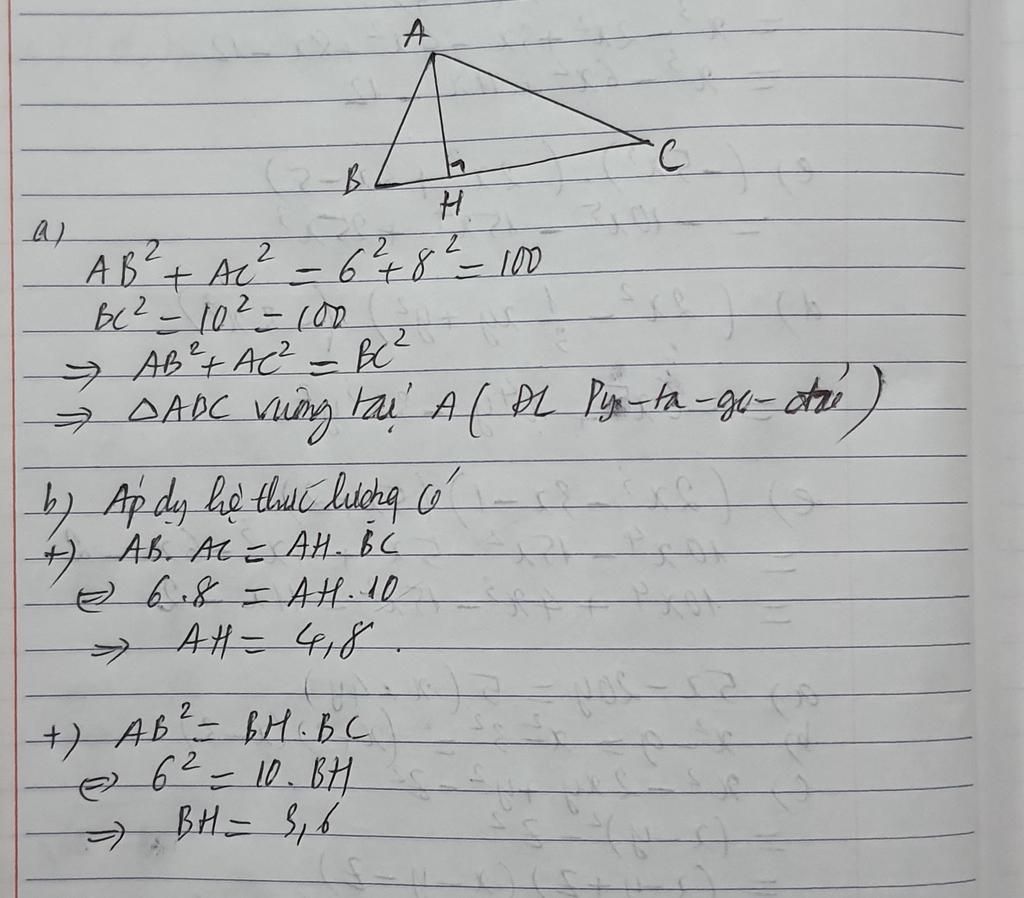 A
B
C
H
a)
AB² + AC² = 6² + 8² = 100
BC² = 10² = 100
⇒ AB² + AC² = BC²
⇒ △ABC vuông tại A ( ĐL Py-ta-go- đảo )
b) Áp dg hệ thức lượng có
+) AB. AC = AH. BC
⇔ 6.8 = AH.10
⇒ AH = 4,8.
+) AB² = BH.BC
⇔ 6² = 10.BH
⇒ BH = 3,6